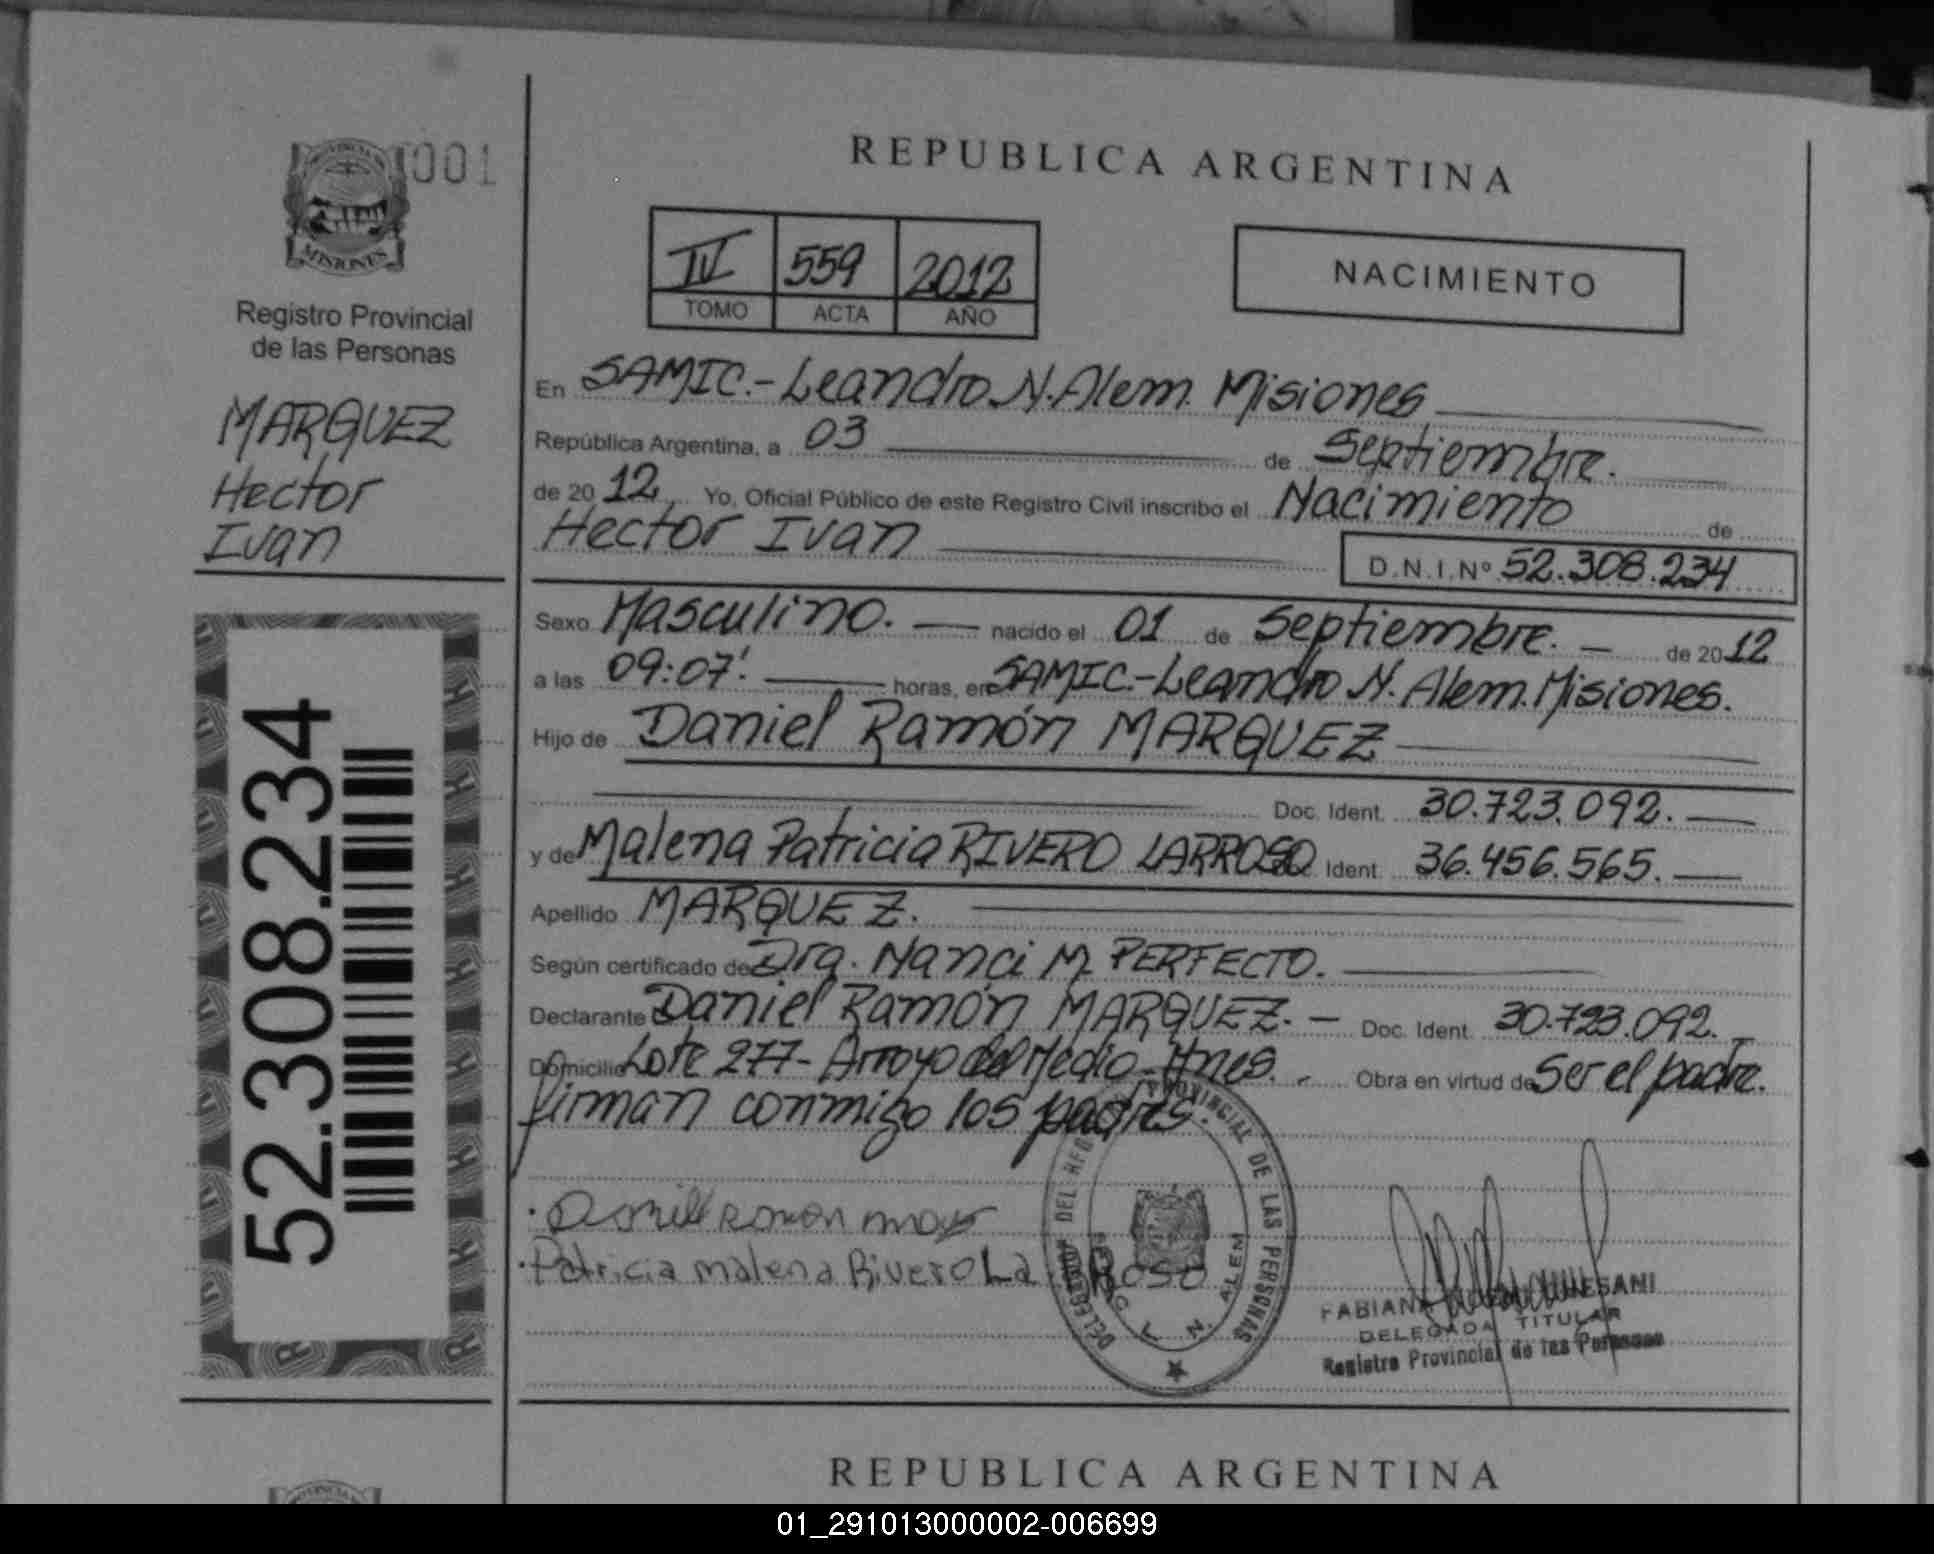 REPUBLICA ARGENTINA
001
PROVINCIA DE
MISIONES
Registro Provincial
de las Personas
MARQUEZ
Hector
Ivan
52.308.234
IV 559 2012
TOMO ACTA AÑO
NACIMIENTO
En SAMIC.- Leandro N. Alem. Misiones
República Argentina, a 03 de Septiembre.
de 20 12 Yo, Oficial Público de este Registro Civil inscribo el Nacimiento de
Hector Ivan
D.N.I.Nº 52.308.234
Sexo Masculino. nacido el 01 de Septiembre. de 20 12
a las 09:07'. horas, en SAMIC.-Leandro N. Alem. Misiones.
Hijo de Daniel Ramón MARQUEZ
Doc. Ident. 30.723.092.
y de Malena Patricia RIVERO LARROSO Ident. 36.456.565.
Apellido MARQUEZ.
Según certificado de Dra. Nanci M. PERFECTO.
Declarante Daniel Ramón MARQUEZ. - Doc. Ident. 30.723.092.
Domicilio Lote 277- Arroyo del Medio- Mnes. Obra en virtud de Ser el padre.
firman conmigo los padres.
Ramon
Patricia malena Rivero La Roso
DEL REG. PROVINCIAL DE LAS PERSONAS
L. N. ALEM
FABIANA
DELEGADA TITULAR
Registro Provincial de las Personas
REPUBLICA ARGENTINA
01_291013000002-006699